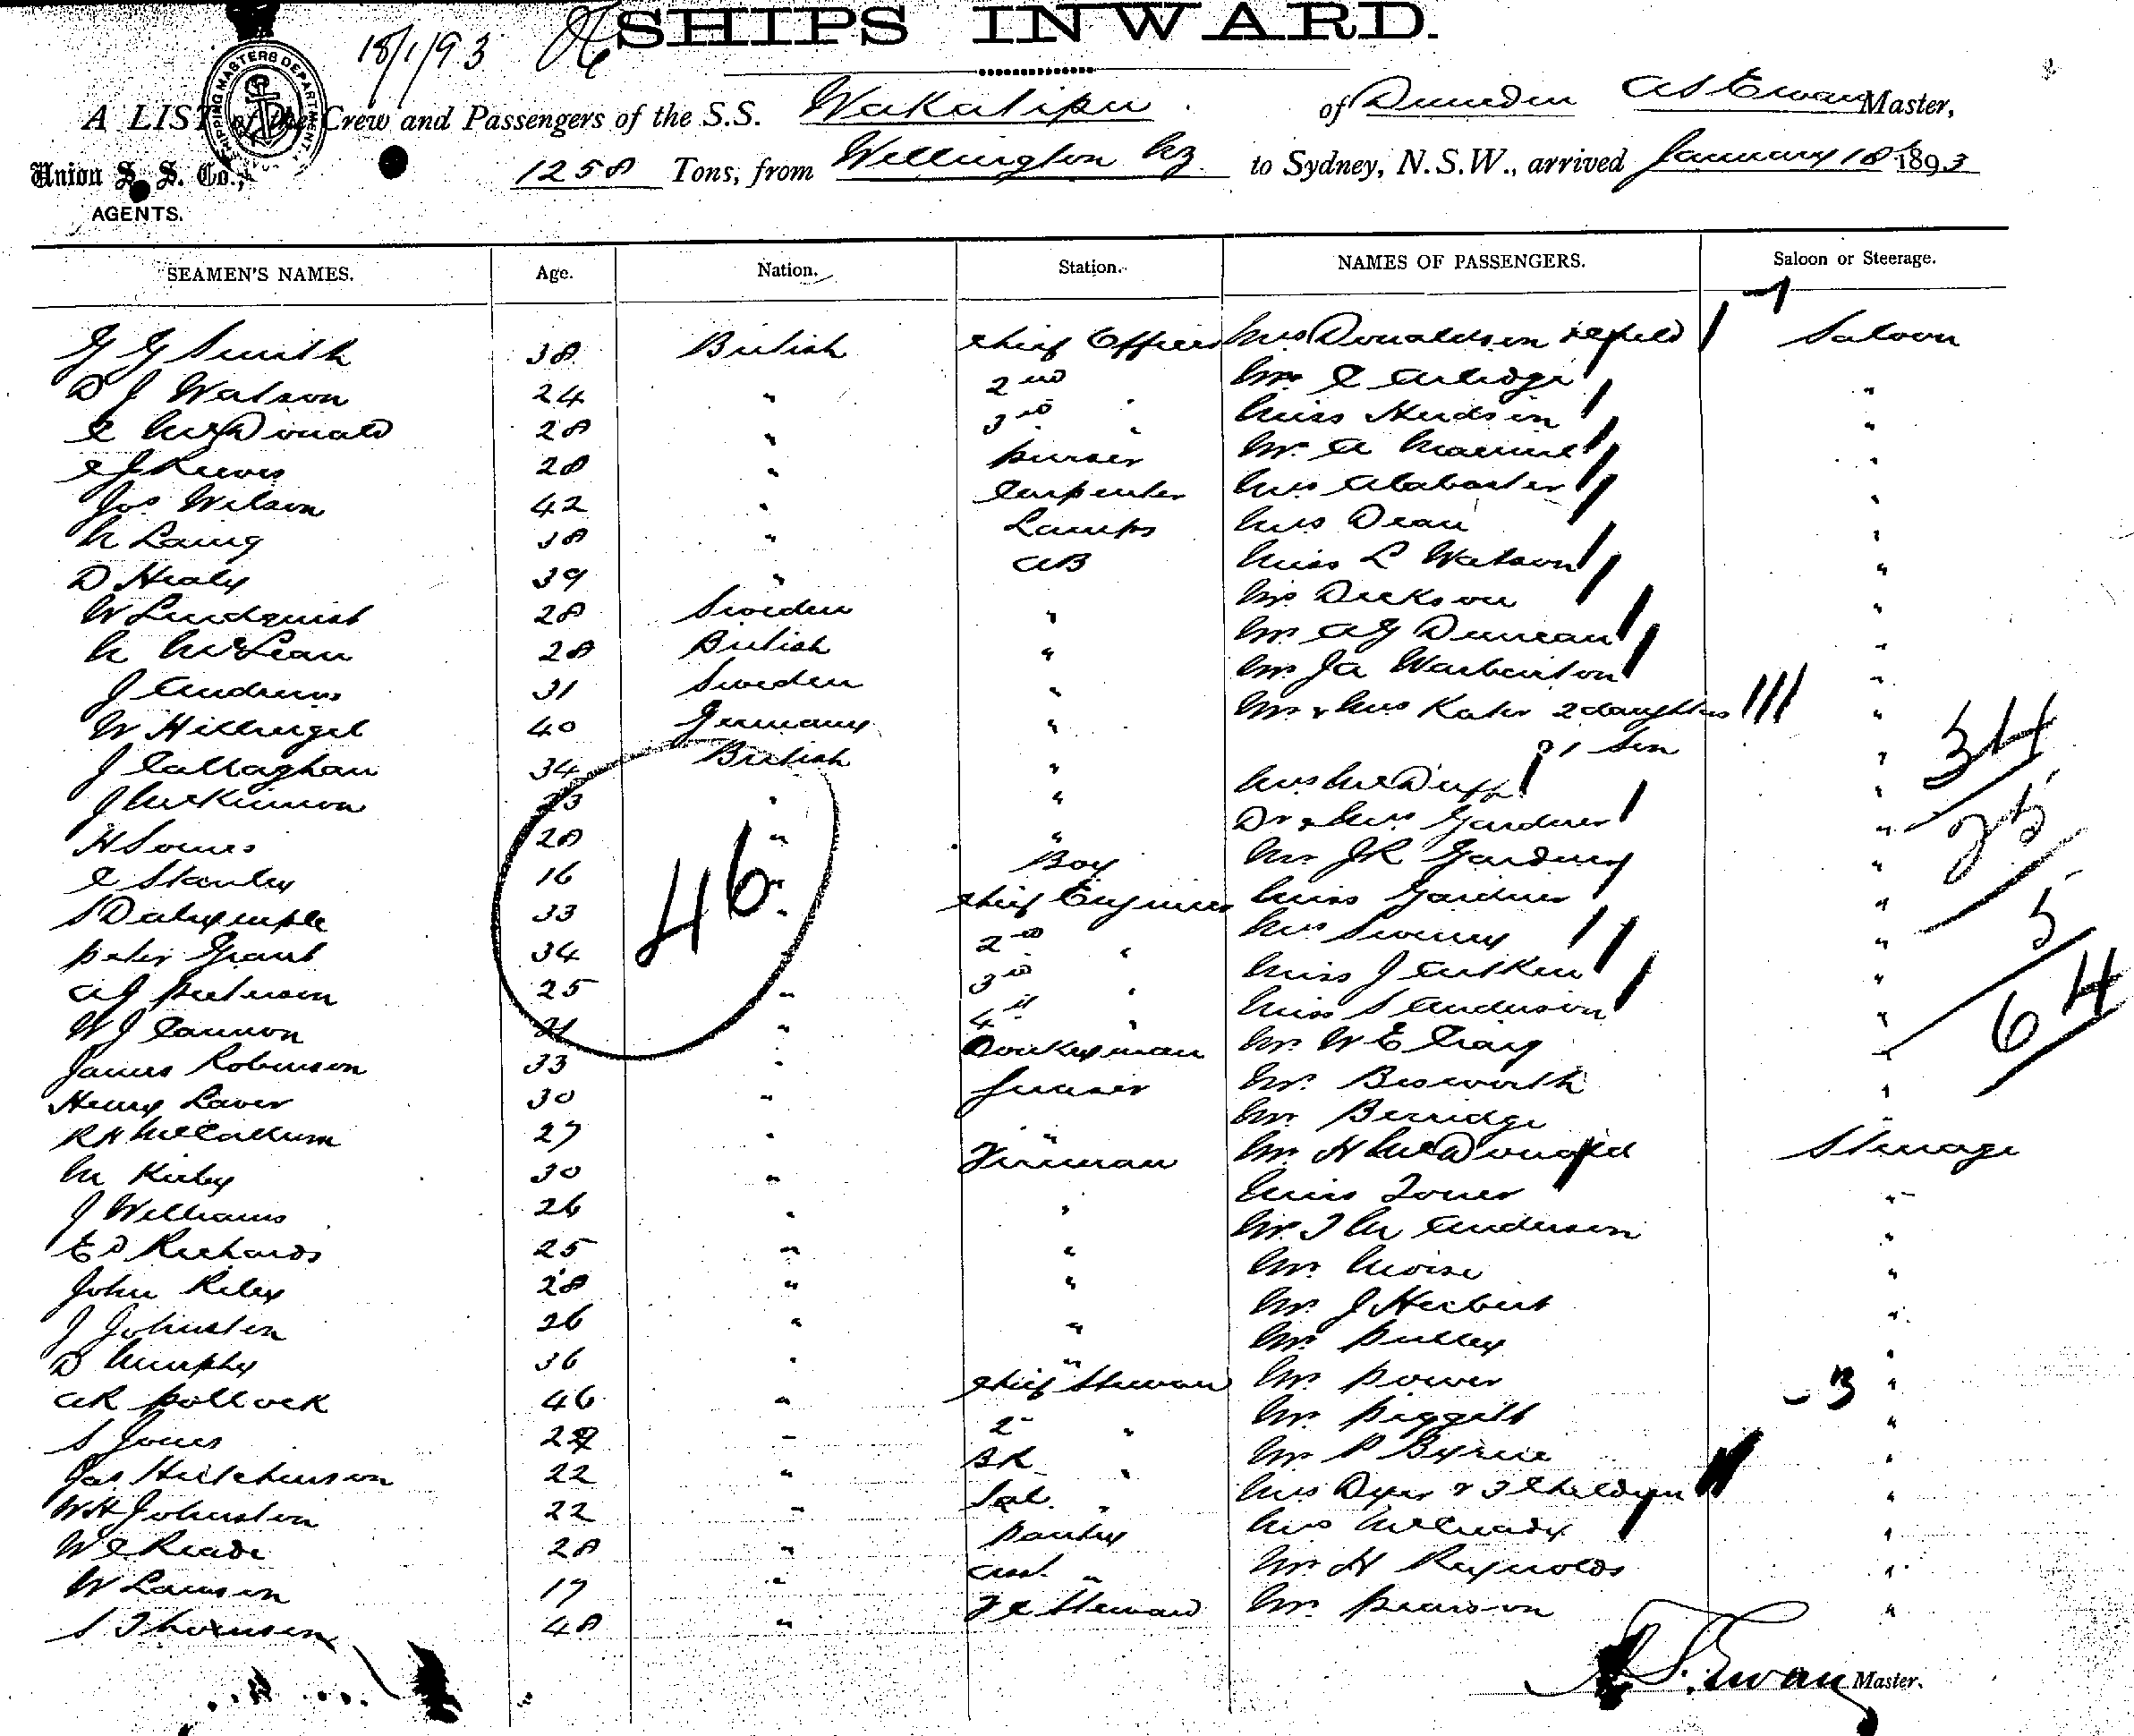 18/1/93
SHIPS INWARD.
SHIPPING MASTERS DEPARTMENT
A LIST of the Crew and Passengers of the S.S. Wakatipu of Dunedin A S Ewan Master,
Union S. S. Co., AGENTS. 1258 Tons, from Wellington NZ to Sydney, N.S.W., arrived January 18th 1893
SEAMEN'S NAMES. Age. Nation. Station. NAMES OF PASSENGERS. Saloon or Steerage.
G G Smith 38 British Chief Officer Mrs Donaldson Saloon
D J Watson 24 " 2nd " Mr C Arlidge "
C McDonald 28 " 3rd " Miss Hudson "
28 " purser Mr A "
Jos Wilson 42 " Carpenter Mrs Alabaster "
Laing 38 " Lamps Mrs Dean "
D Healy 39 " AB Miss L Watson "
W Lindquist 28 Sweden " Dickson "
McLean 28 British " Mr A G Duncan "
J Andrews 31 Sweden " Mr J A Warburton "
W 40 Germany " Mr & Mrs 2 daughters "
J Callaghan 34 British " & 1 Son "
J McKinnon 23 " " Mrs McDuff "
H 28 " " Dr & Mrs Gardner "
C Stanley 16 " Boy Mr J R "
S Dalrymple 33 " Chief Engineer Miss Gardner "
Peter Grant 34 " 2nd " "
A J Peterson 25 " 3rd " Miss J Aitken "
W J Cannon 21 " 4th " Miss S Anderson "
James Robinson 33 " Donkeyman Mr W E Craig "
Henry Laver 30 " Greaser Mr Bosworth "
R H McCallum 27 " " Mr Berridge "
M Kirby 30 " Fireman Mr H McDonald Steerage
J Williams 26 " " Miss "
E D Richards 25 " " Mr T M Anderson "
John Riley 28 " " Mr "
J Johnston 26 " " Mr J Herbert "
D Murphy 36 " " Mr Pulley "
A R Pollock 46 " Chief Steward Mr Power "
S Jones " 2 " Mr Piggott "
Jas Hutchinson 22 " BK " Mr P Byrne "
W H Johnston 22 " Sal. " Mrs Dyer & 3 Children "
W C Reade 28 " Pantry Mrs McCready "
W Lawson 17 " Asst. " Mr H Reynolds "
S Thomson 48 " F C Steward Mr Pearson "
46
34
25
5
64
3
A S. Ewan Master.